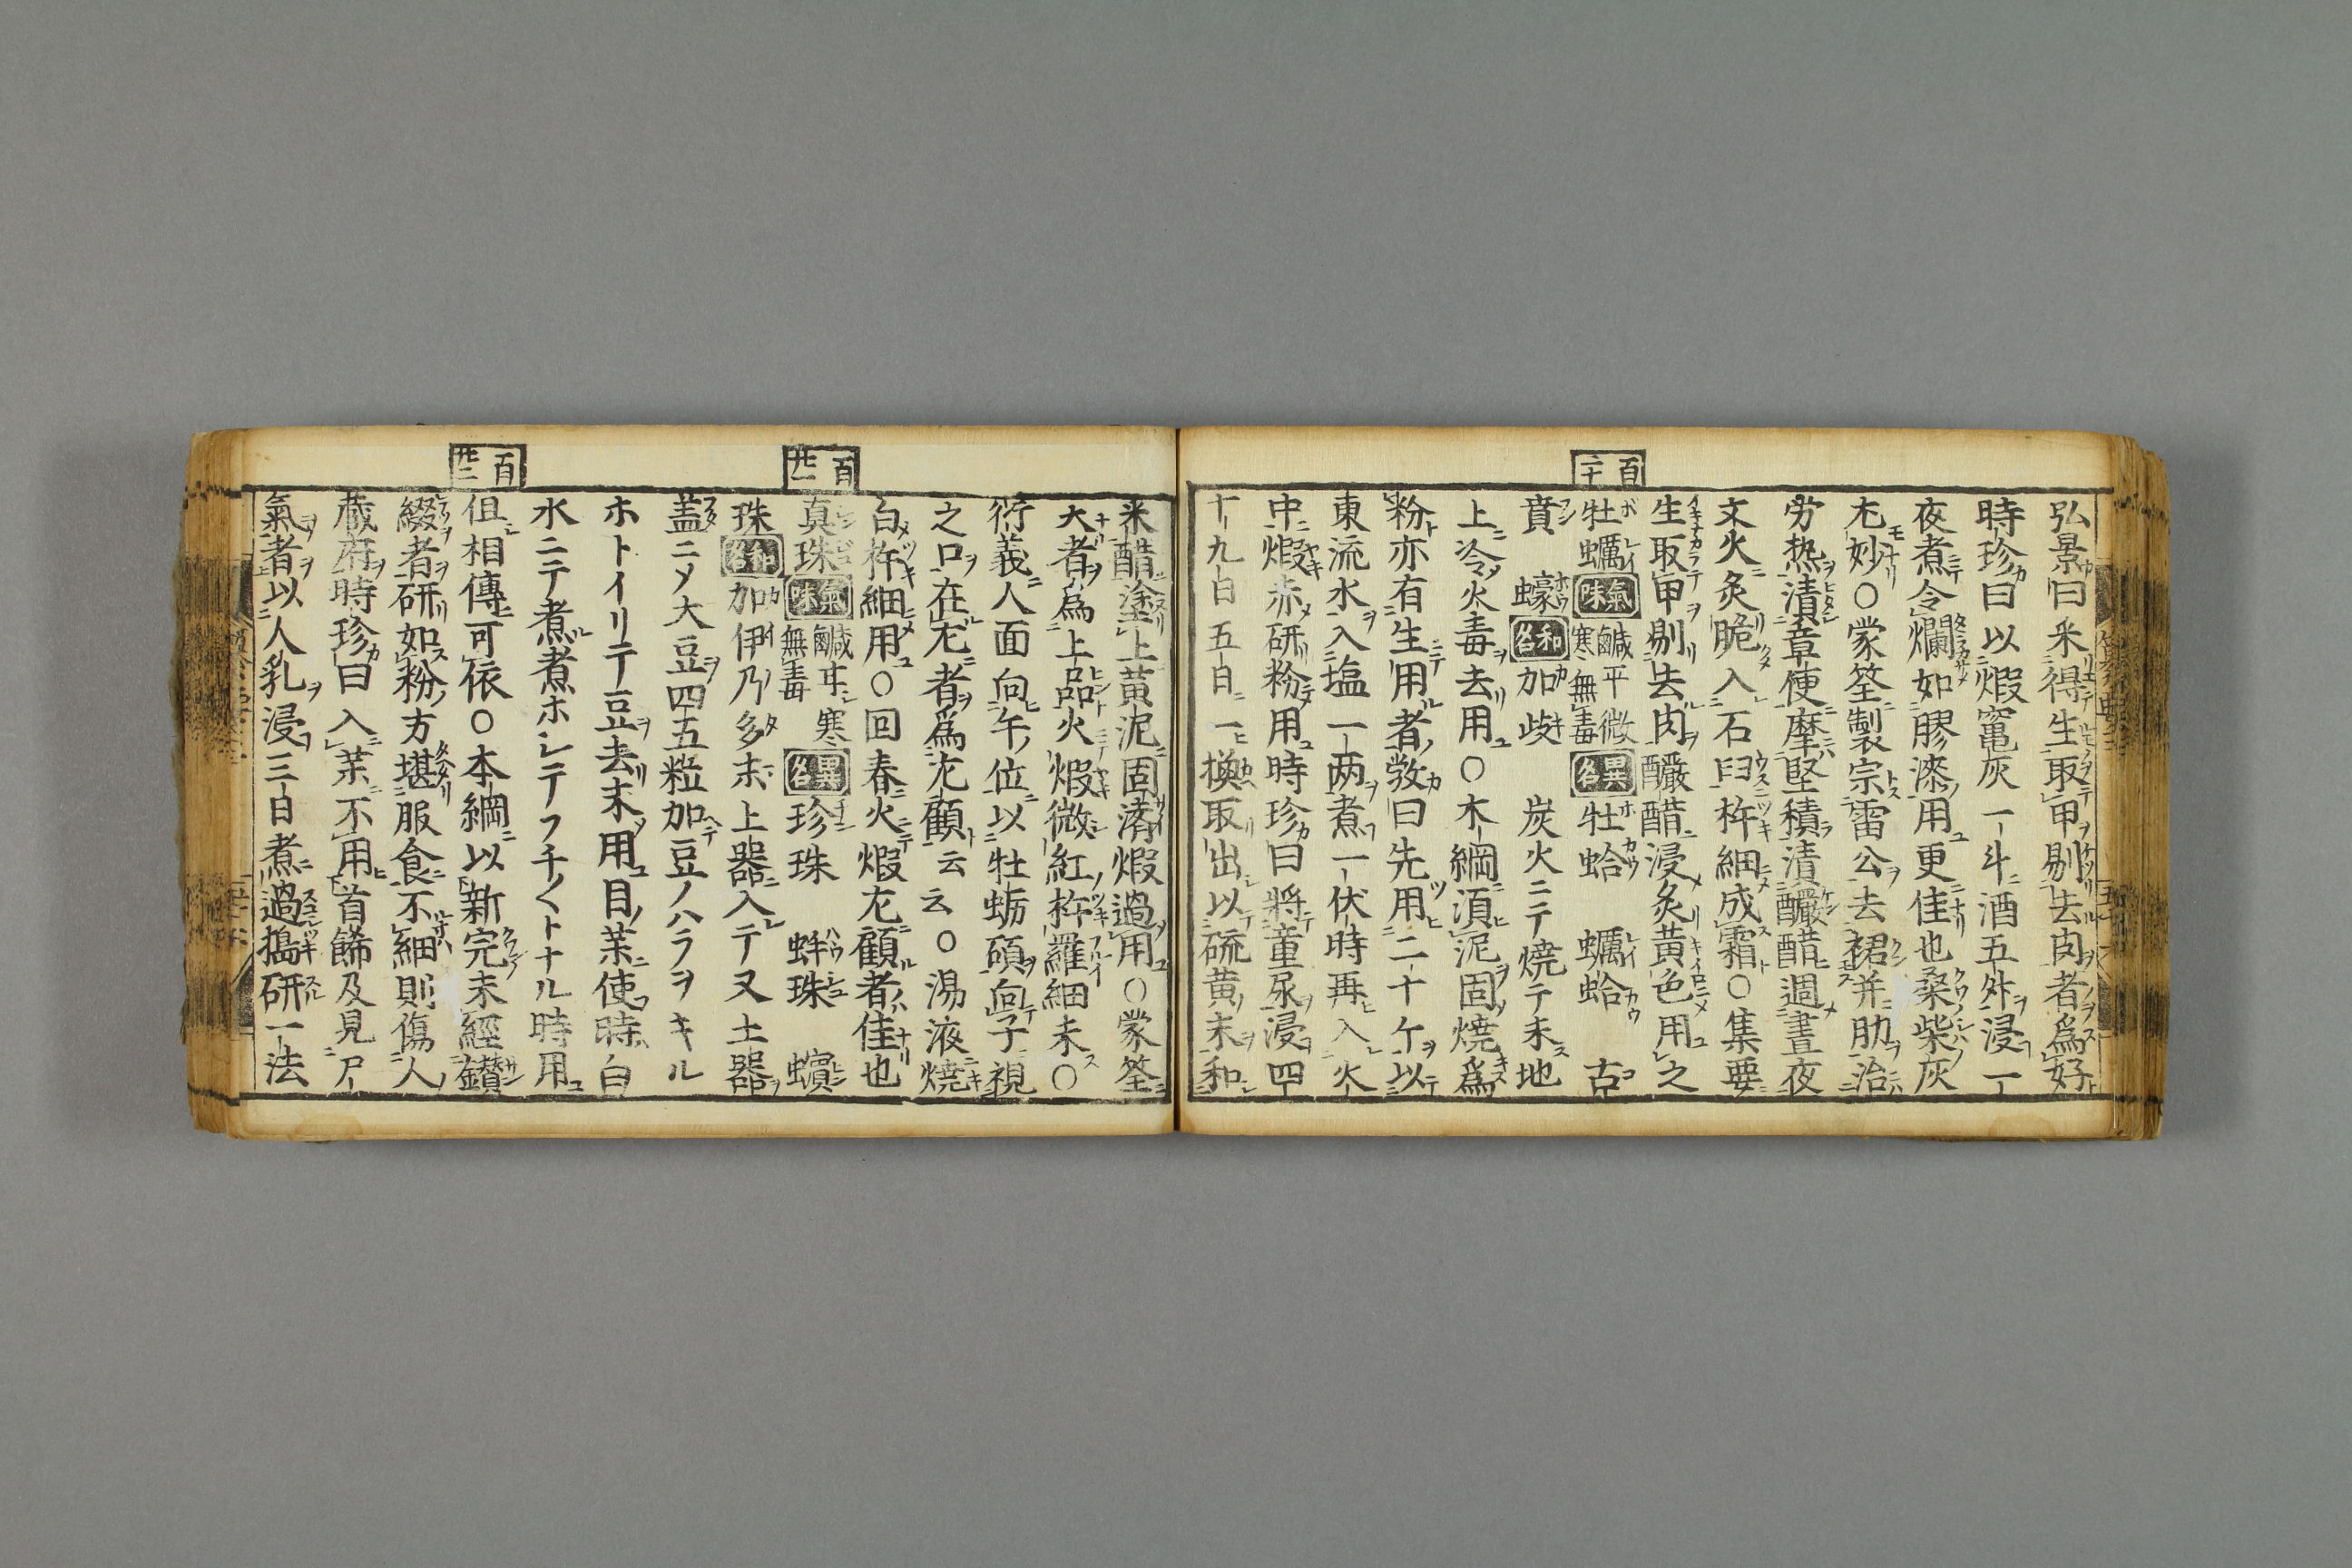 百二十
弘景曰釆得生取甲剔去肉者為好
時珍曰以煆竃灰一斗酒五舛浸一
夜煮令爛如膠漆用更佳也桑柴灰
尤妙○蒙筌製宗雷公去裙并肋治
労热漬童便摩堅積漬釅醋週晝夜
文火炙脆入石臼杵細成霜○集要
生取甲剔去肉釅醋浸炙黄色用之
牡蠣 氣味 鹹平微寒無毒 異名 牡蛤 蠣蛤 古
賁 蠔 和名 加歧 炭火ニテ焼テ末地
上冷火毒去用○本綱湏泥固焼為
粉亦有生用者敩曰先用二十个以
東流水入塩一两煮一伏時再入火
中煆赤研粉用時珍曰將童尿浸四
十九日五日一換取出以硫黄末和
米醋塗上黄泥固濟煆過用○蒙筌
大者為上品火煆微紅杵羅細末○
衍義人面向午位以牡蛎頭向子視
之口在左者為左顧云云○湯液焼
白杵細用○回春火煆左顧者佳也
百廿一
真珠 氣味 鹹甘寒無毒 異名 珍珠 蚌珠 蠙
珠 和名 加伊乃多末 上器入テ又土器
盖ニメ大豆四五粒加豆ノハラヲキル
ホトイリテ豆去末用目茉使時白
水ニテ煮煮ホシテフチ〱トナル時用
百廿二
伹相傳可依○本綱以新完未經鑚
綴者研如粉方堪服食不細則傷人
蔵府時珍曰入茉不用首餙及見尸
氣者以人乳浸三日煮過搗研一法